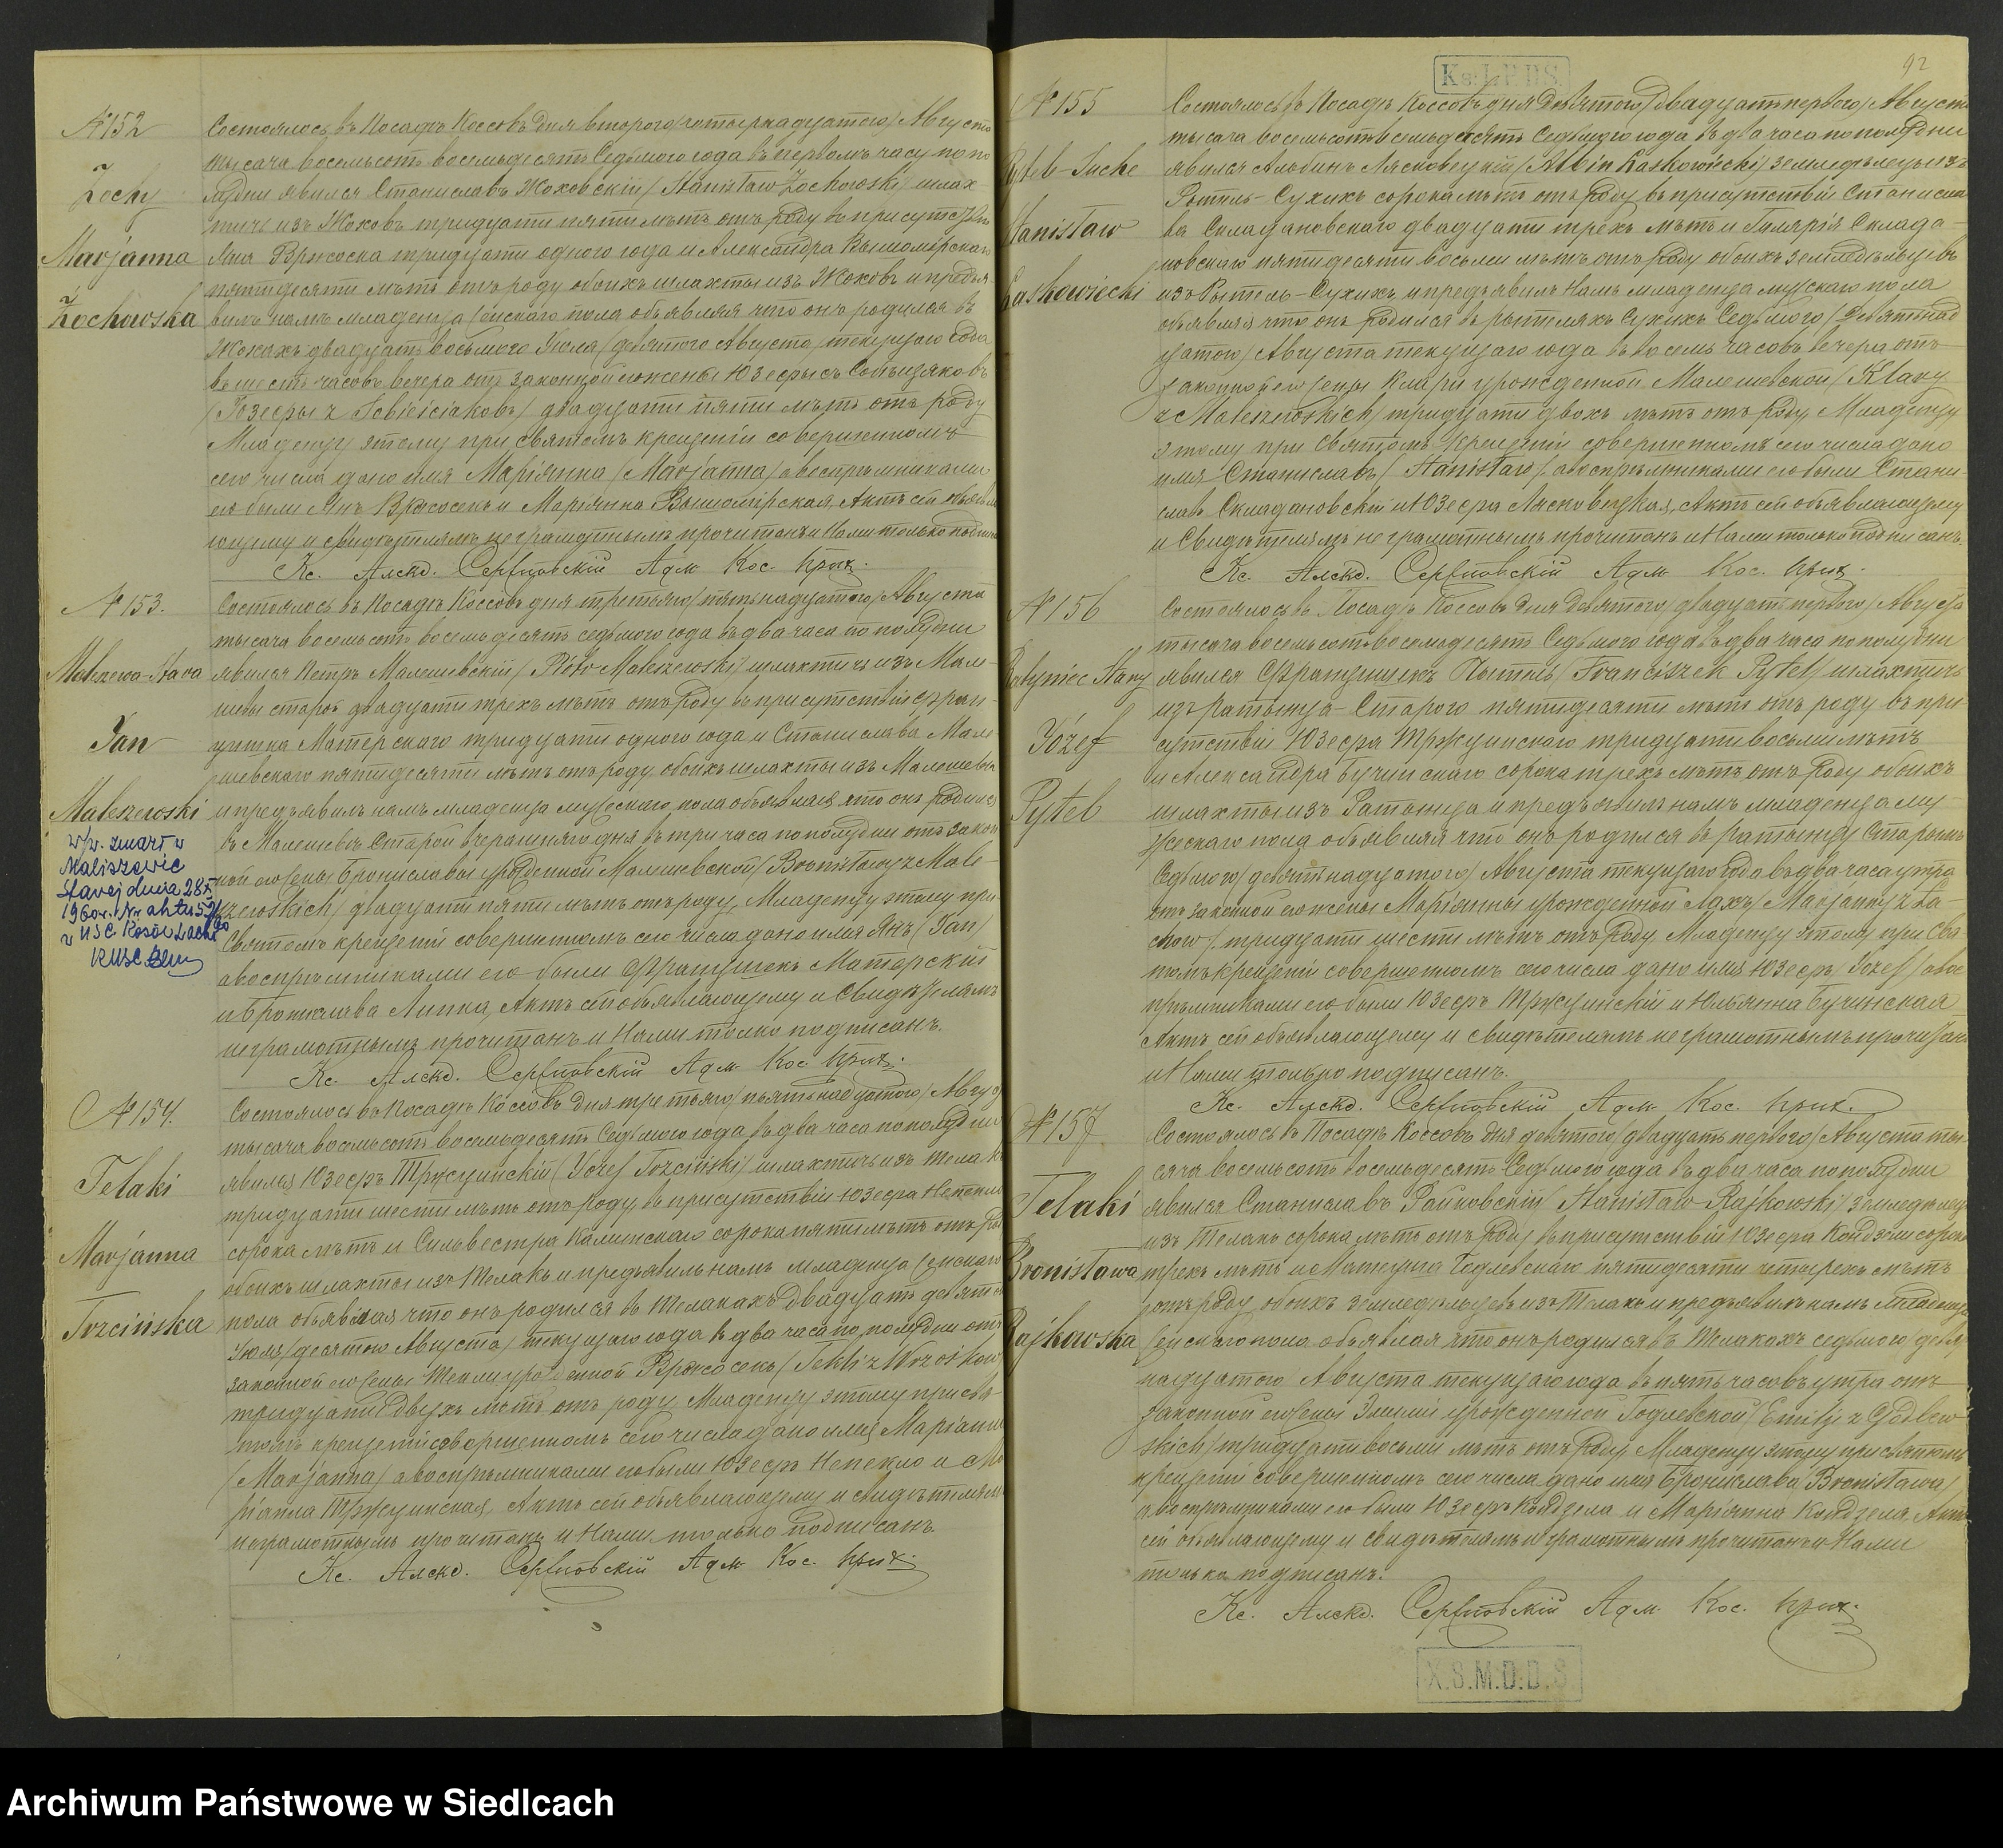 № 152
Żochy
Marjanna
Żochowska
Состоялось въ Посадѣ Коссовѣ дня втораго/четырнадцатаго/ Августа
тысяча восемьсотъ восемьдесятъ седьмого года въ первомъ часу попо
лудни явился Станиславъ Жоховскій /Stanisław Żochowski/ шлях-
тичъ изъ Жоховъ тридцати пяти лѣтъ отъ роду въ присутствіи
Яна Вржоска тридцати одного года и Александра Вышомірскаго
пятидесяти лѣтъ отъ роду обоихъ шляхты изъ Жоховъ и предъя
вилъ намъ младенца женскаго пола объявляя что онъ родился въ
Жохахъ двадцать восьмого Іюля /девятого Августа/ текущаго года
въ шесть часовъ вечера отъ законной его жены Юзефы съ
/Józefy z / двадцати пяти лѣтъ отъ роду
Младенцу этому при святомъ крещеніи совершенномъ
сего числа дано имя Маріянна /Marjanna/ а воспріемниками
его были Янъ Вржосекъ и Маріянна Вышомірская, Актъ сей объявля
ющему и свидѣтелямъ неграмотнымъ прочитанъ и Нами только подписанъ
Кс. Алекд. Адм. Кос. прих.
№ 153.
Maleszewa-Stara
Jan
Maleszewski
w/w. zmarł w
Maliszewie
Starej dnia 28 X
1960 r. Nr aktu 59/60
w USC Kosów Lacki
KUSC
Состоялось въ Посадѣ Коссовѣ дня третьяго/пятьнадцатого/ Августа
тысяча восемьсотъ восемьдесятъ седьмого года въ два часа по полудни
явился Петръ Малешевскій /Piotr Maleszewski/ шляхтичъ изъ Мале-
шевы старой двадцати трехъ лѣтъ отъ роду въ присутствіи Фран-
цишка Матерскаго тридцати одного года и Станислава Мале
шевскаго пятидесяти лѣтъ отъ роду, обоихъ шляхты изъ Малешевы
и предъявилъ намъ младенца мужескаго пола объявляя что онъ родился
въ Малешевѣ Старой вчерашняго дня въ три часа по полудни отъ закон
ной его жены Брониславы урожденной Малешевской /Bronisławy z Male-
szewskich/ двадцати пяти лѣтъ отъ роду, Младенцу этому при
Святомъ крещеніи совершенномъ сего числа дано имя Янъ /Jan/
а воспріемниками его были Францишекъ Матерскій
и Бронислава Липка, Актъ сей объявляющему и Свидѣтелямъ
неграмотнымъ прочитанъ и Нами только подписанъ.
Кс. Алекд. Адм. Кос. прих.
№ 154.
Telaki
Marjanna
Trzcińska
Состоялось въ Посадѣ Коссовѣ дня третьяго/пятьнадцатого/ Авгус
тысяча восемьсотъ восемьдесятъ Седьмого года въ два часа по полудни
явился Юзефъ Тржцинскій /Józef Trzciński/ шляхтичъ изъ Телакъ
тридцати шести лѣтъ отъ роду, въ присутствіи Юзефа Непекло
сорока лѣтъ и Сильвестра Калинскаго сорока пяти лѣтъ отъ роду
обоихъ шляхты изъ Телакъ и предъявилъ намъ младенца женскаго
пола объявляя что онъ родился въ Телакахъ двадцать девятого
Іюля/десятого Августа/ текущаго года въ два часа по полудни отъ
законной его жены Теклы урожденной Вржосекъ /Tekli z Wrzosków
тридцати двухъ лѣтъ отъ роду, Младенцу этому при свя-
томъ крещеніи совершенномъ сего числа дано имя Маріанна
/Marjanna/ а воспріемниками его были Юзефъ Непекло и Ма
ріанна Тржцинская, Актъ сей объявляющему и свидѣтелямъ
неграмотнымъ прочитанъ и Нами только подписанъ.
Кс. Алекд. Адм. Кос. прих.
92
№ 155
Rytele-Suche
Stanisław
Laskowiecki
Состоялось въ Посадѣ Коссовѣ дня Девятого/Двадцатьпервого/ Августа
тысяча восемьсотъ восемьдесятъ Седьмого года въ два часа по полудни
явился Альбинъ Лясковецкій /Albin Laskowiecki/ земледѣлецъ изъ
Рытель-Сухихъ сорока лѣтъ отъ роду въ присутствіи Станисла
ва Складановскаго двадцати трехъ лѣтъ и Гилярія Склада-
новскаго пятидесяти восьми лѣтъ отъ роду обоихъ земледѣльцевъ
изъ Рытель-Сухихъ, и предъявилъ Намъ младенца мужскаго пола
объявляя что онъ родился въ Рытеляхъ Сухихъ Седьмого/Девятьнад
цатого/ Августа текущаго года въ восемь часовъ вечера отъ
законной его жены Клары урожденной Малешевской /Klary
z Maleszewskich/ тридцати двохъ лѣтъ отъ роду, Младенцу
этому при Святомъ крещеніи совершенномъ сего числа дано
имя Станиславъ /Stanisław/ а воспріемниками его были Стани-
славъ Складановскій и Юзефа Лясковецкая, Актъ сей объявляющему
и Свидѣтелямъ неграмотнымъ прочитанъ и Нами только подписанъ.
Кс. Алекд. Адм. Кос. прих.
№ 156
Ratyniec Stary
Józef
Pytel
Состоялось въ Посадѣ Коссовѣ дня Девятого/двадцатьпервого/ Августа
тысяча восемьсотъ восемьдесятъ Седьмого года въ два часа по полудни
явился Францишекъ Пытель /Franciszek Pytel/ шляхтичъ
изъ Ратынца-Старого пятидесяти лѣтъ отъ роду въ при-
сутствіи Юзефа Тржцинскаго тридцати восьми лѣтъ
и Александра Бучинскаго сорока трехъ лѣтъ отъ роду обоихъ
шляхты изъ Ратынца и предъявилъ намъ младенца му-
жескаго пола объявляя что онъ родился въ Ратынцу Старымъ
Седьмого/девятьнадцатого/ Августа текущаго года въ два часа утра
отъ законной его жены Маріанны урожденной Лахъ /Marjanny z La-
chów/ тридцати шести лѣтъ отъ роду, Младенцу этому при Свя
томъ крещеніи совершенномъ сего числа дано имя Юзефъ /Józef/ а вос
пріемниками его были Юзефъ Тржцинскій и Юльянна Бучинская
Актъ сей объявляющему и свидѣтелямъ неграмотнымъ прочитанъ
и Нами только подписанъ.
Кс. Алекд. Адм. Кос. прих.
№ 157
Telaki
Bronisława
Rajkowska
Состоялось въ Посадѣ Коссовѣ дня девятого/двадцатьпервого/ Августа ты-
сяча восемьсотъ восемьдесятъ Седьмого года въ два часа по полудни
явился Станиславъ Райковскій /Stanisław Rajkowski/ земледѣлецъ
изъ Телакъ сорока лѣтъ отъ роду въ присутствіи Юзефа сорока
трехъ лѣтъ и Матеуша Годлевскаго пятидесяти четырехъ лѣтъ
отъ роду обоихъ земледѣльцевъ изъ Телакъ и предъявилъ намъ младенца
женскаго пола объявляя что онъ родился въ Телакахъ седьмого/девять
надцатого Августа текущаго года въ пять часовъ утра отъ
законной его жены Эмиліи урожденной Годлевской /Emilji z Godlew
skich/ тридцати восьми лѣтъ отъ роду, Младенцу этому при святомъ
крещеніи совершенномъ сего числа дано имя Бронислава /Bronisława/
а воспріемниками его были Юзефъ и Маріянна Актъ
сей объявляющему и свидѣтелямъ неграмотнымъ прочитанъ и Нами
только подписанъ.
Кс. Алекд. Адм. Кос. прих.
X.S.M.D.D.S.
Archiwum Państwowe w Siedlcach